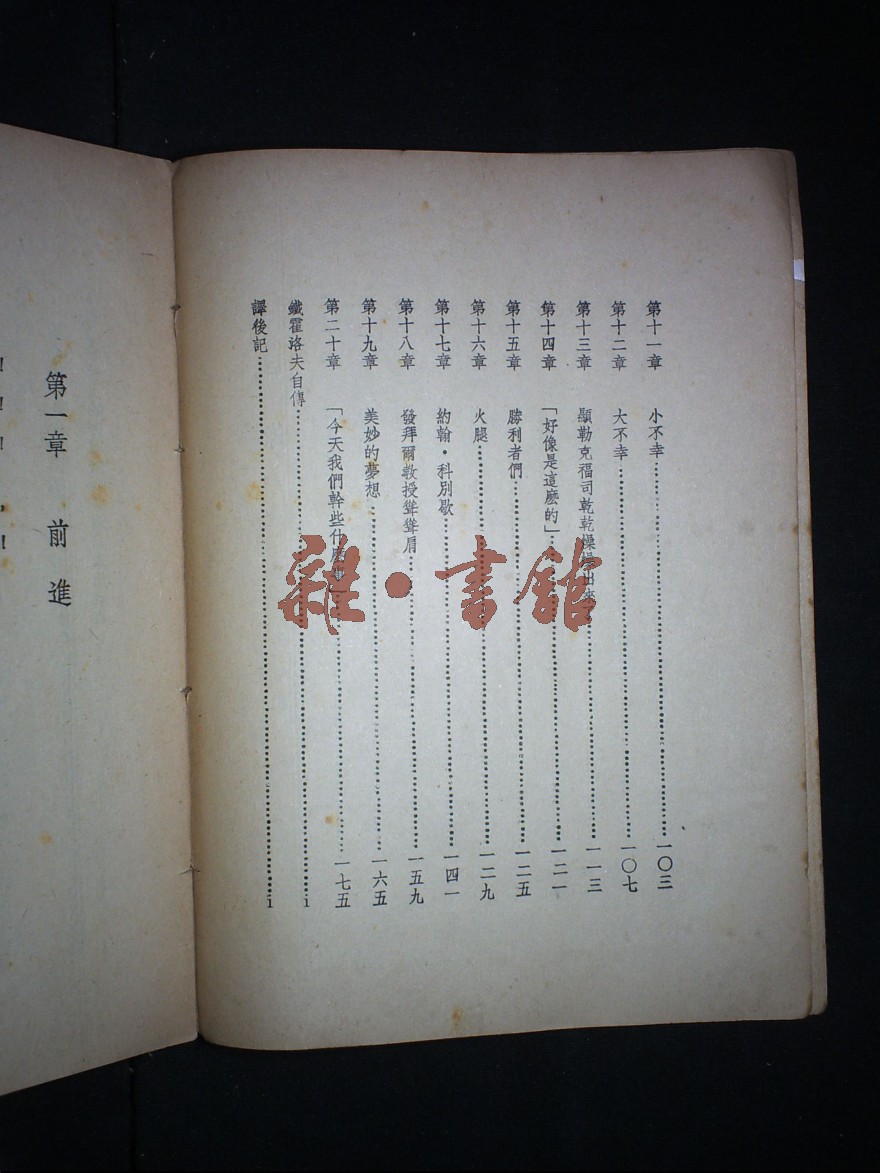 第十一章 小不幸 一〇三
第十二章 大不幸 一〇七
第十三章 顯勒克福司乾乾燥燥出來了 一一三
第十四章 「好像是這麽的」 一二一
第十五章 勝利者們 一二五
第十六章 火腿 一二九
第十七章 約翰·科別歇 一四一
第十八章 發拜爾敎授聳聳肩 一五九
第十九章 美妙的夢想 一六五
第二十章 「今天我們幹些什麽 一七五
鐵霍洛夫自傳 i
譯後記 i
第一章 前進
雜·書館